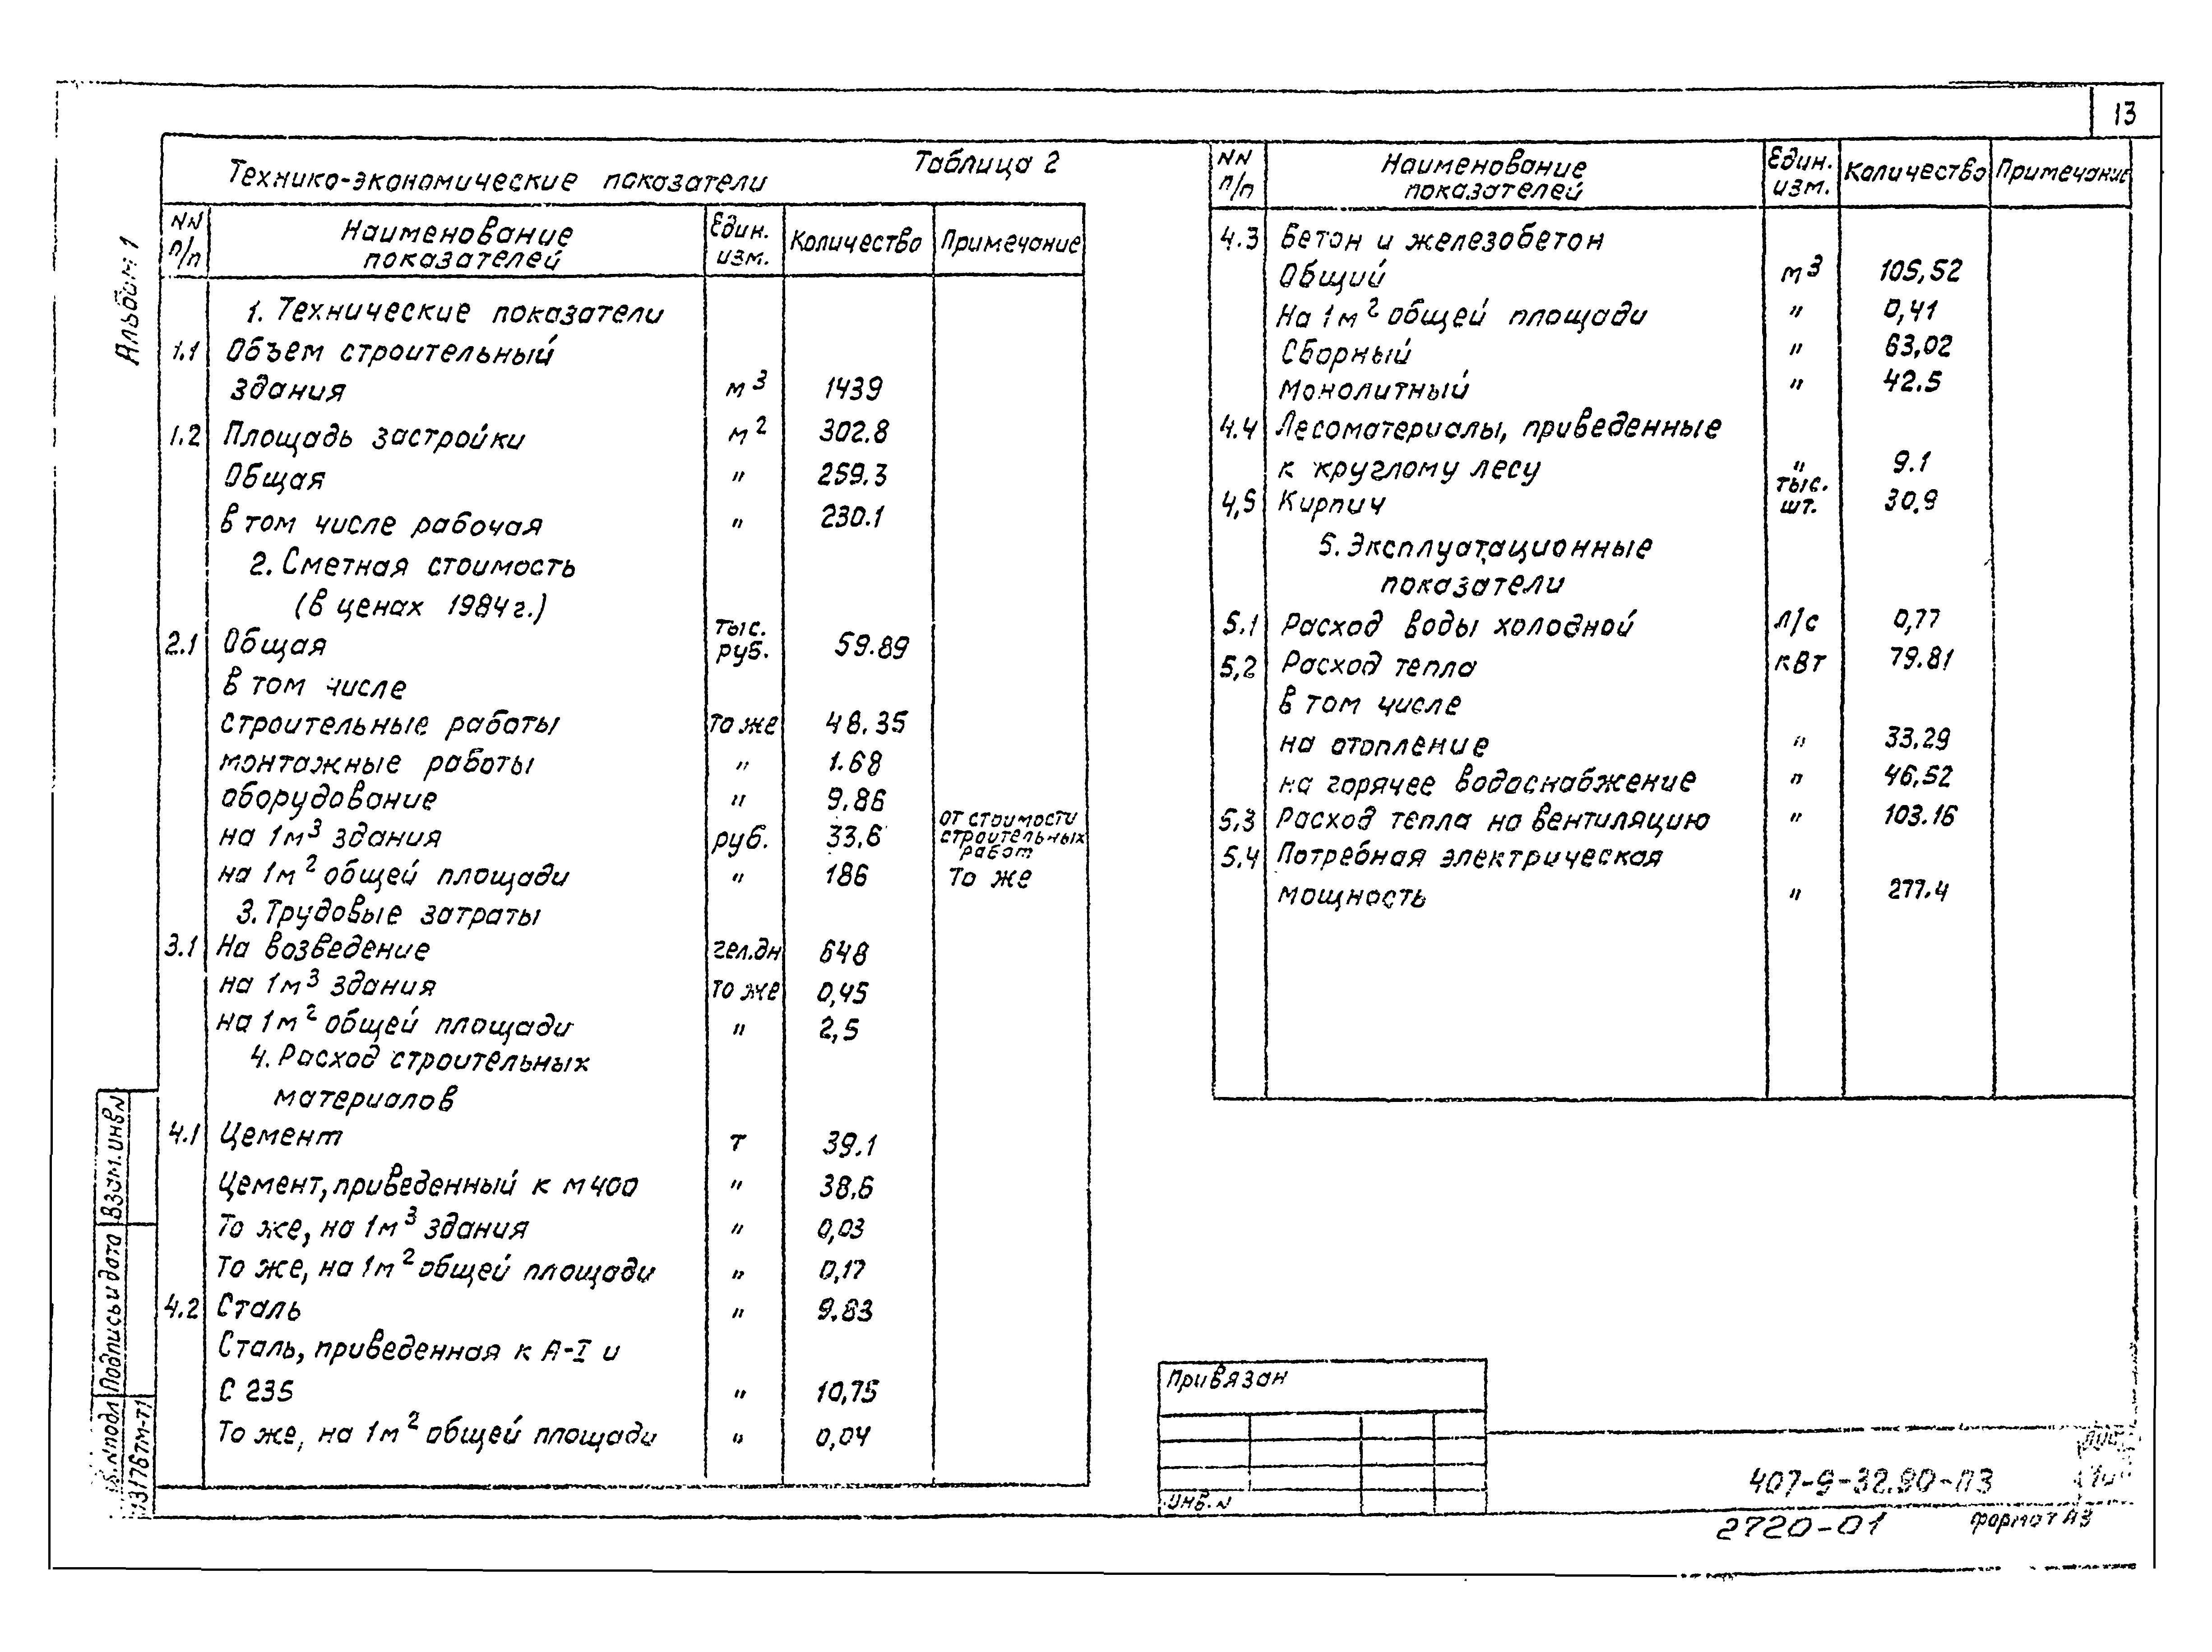 13
Альбом 1
Таблица 2
Технико-экономические показатели
NN п/п | Наименование показателей | Един. изм. | Количество | Примечание
1. Технические показатели
1.1 Объем строительный
здания м³ 1439
1.2 Площадь застройки м² 302.8
Общая " 259.3
в том числе рабочая " 230.1
2. Сметная стоимость
(в ценах 1984г.)
2.1 Общая тыс. руб. 59.89
в том числе
строительные работы то же 48.35
монтажные работы " 1.68
оборудование " 9.86
на 1м³ здания руб. 33.6 от стоимости строительных работ
на 1м² общей площади " 186 То же
3. Трудовые затраты
3.1 На возведение чел.дн 648
на 1м³ здания то же 0,45
на 1м² общей площади " 2,5
4. Расход строительных
материалов
4.1 Цемент т 39.1
Цемент, приведенный к м400 " 38.6
То же, на 1м³ здания " 0,03
То же, на 1м² общей площади " 0,17
4.2 Сталь " 9.83
Сталь, приведенная к А-I и
С 235 " 10,75
То же, на 1м² общей площади " 0,04
NN п/п | Наименование показателей | Един. изм. | Количество | Примечание
4.3 Бетон и железобетон
Общий м³ 105,52
На 1м² общей площади " 0,41
Сборный " 63,02
Монолитный " 42.5
4.4 Лесоматериалы, приведенные
к круглому лесу " 9.1
4,5 Кирпич тыс. шт. 30,9
5. Эксплуатационные
показатели
5.1 Расход воды холодной л/с 0,77
5,2 Расход тепла кВт 79.81
в том числе
на отопление " 33.29
на горячее водоснабжение " 46,52
5,3 Расход тепла на вентиляцию " 103.16
5.4 Потребная электрическая
мощность " 277.4
Взам.инв.N
Подпись и дата
N подл
13176тм-т1
Привязан
Инв.N
407-9-32.90-ПЗ
2720-01
формат А3